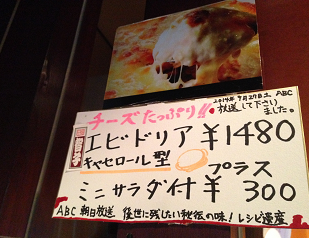 2014年9月27日土 ABC
放送して下さい
ました。
チーズたっぷり!!
エビドリア ¥1480
キャセロール型
プラス
ミニサラダ付 ¥300
ABC 朝日放送 後世に残したい秘伝の味! レシピ遺産